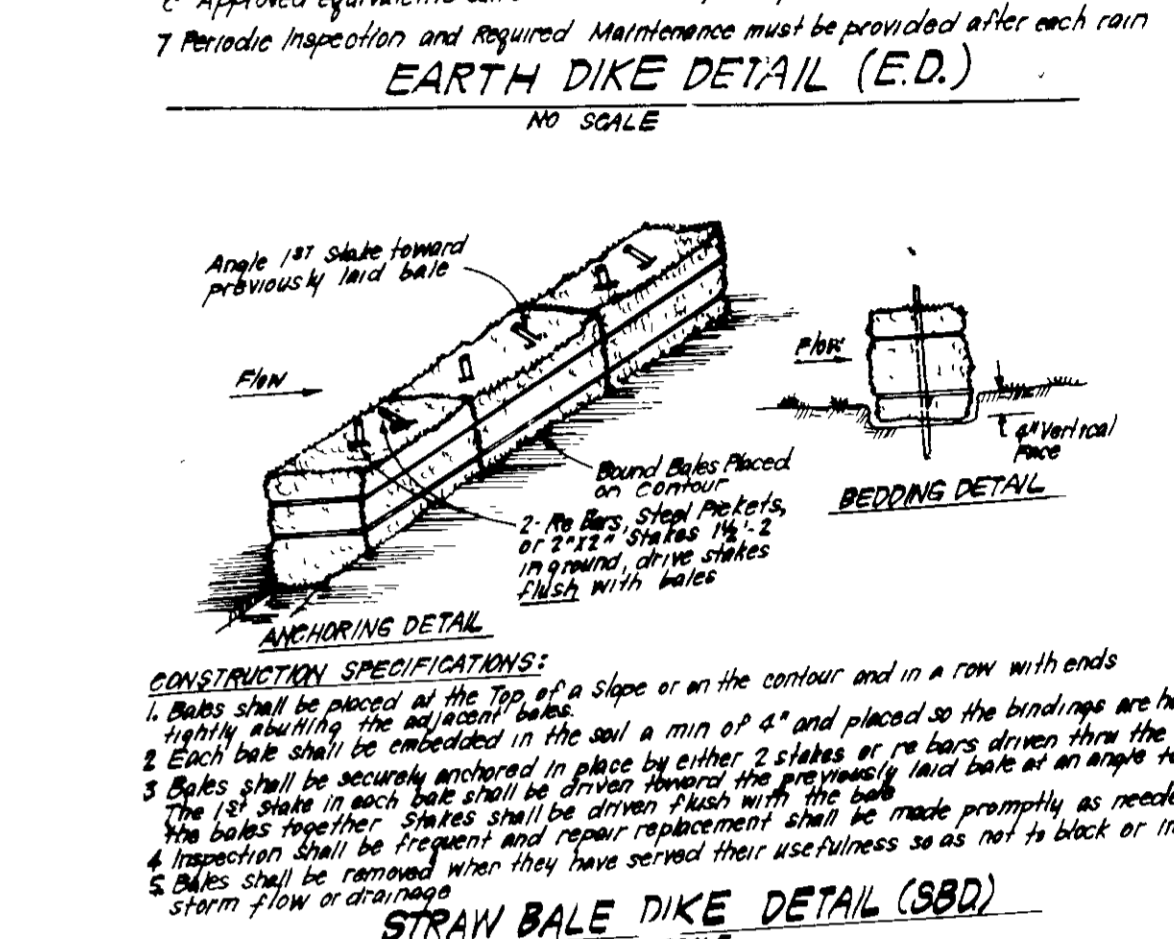 Approved equivalents
7 Periodic Inspection and Required Maintenance must be provided after each rain
EARTH DIKE DETAIL (E.D.)
NO SCALE
Angle 1ST Stake toward
previously laid bale
Flow
Flow
4" Vertical
Face
Bound Bales Placed
on contour
BEDDING DETAIL
2- Re Bars, Steel Pickets,
or 2"x2" Stakes 1½'-2
in ground, drive stakes
flush with bales
ANCHORING DETAIL
CONSTRUCTION SPECIFICATIONS:
1. Bales shall be placed at the Top of a slope or on the contour and in a row with ends
tightly abutting the adjacent bales.
2 Each bale shall be embedded in the soil a min of 4" and placed so the bindings are
3 Bales shall be securely anchored in place by either 2 stakes or re bars driven thru the
The 1st stake in each bale shall be driven toward the previously laid bale at an angle
the bales together Stakes shall be driven flush with the bale
4 Inspection shall be frequent and repair replacement shall be made promptly as
5. Bales shall be removed when they have served their usefulness so as not to block or
storm flow or drainage
STRAW BALE DIKE DETAIL (SBD.)